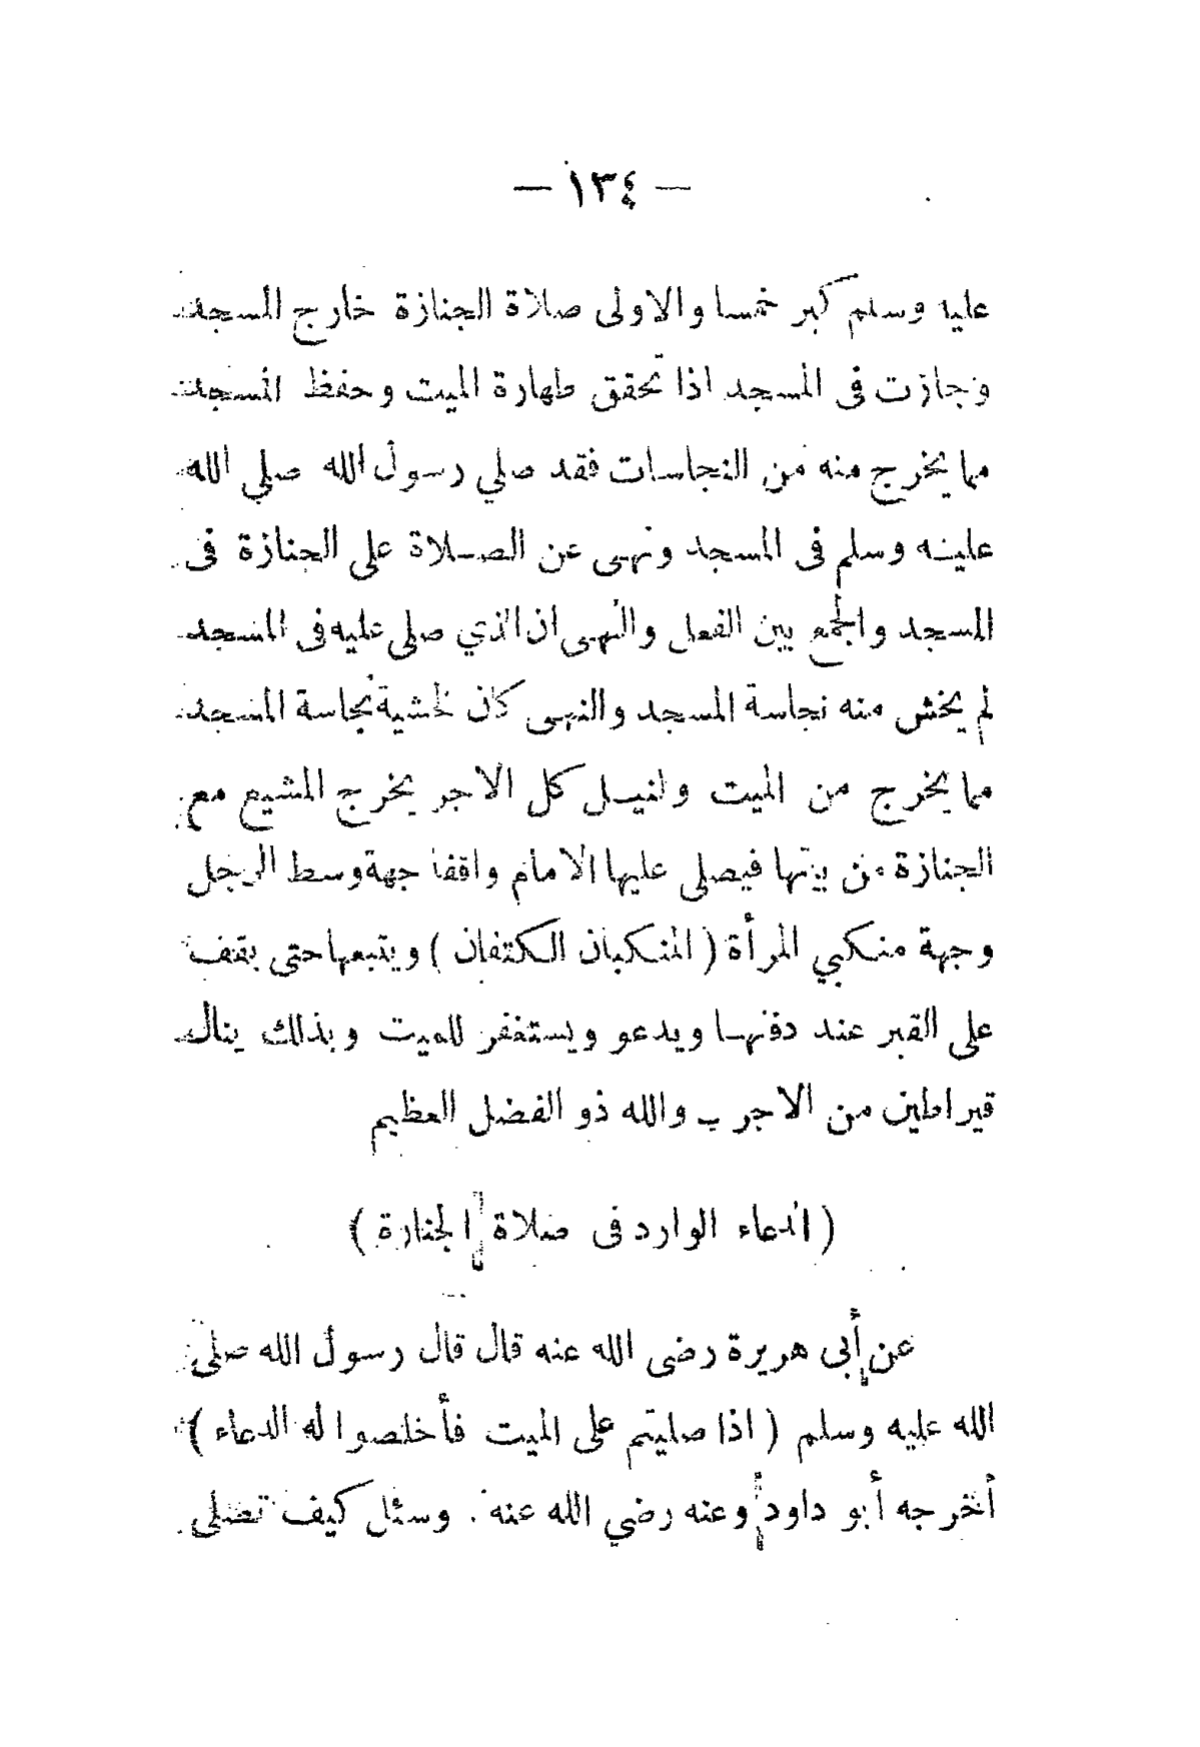 — ١٣٤ —
عليه وسلم كبر خمسا والاولى صلاة الجنازة خارج المسجد
وجازت فى المسجد اذا تحقق طهارة الميت وحفظ المسجد
مما يخرج منه من النجاسات فقد صلي رسول الله صلي الله
عليه وسلم فى المسجد ونهى عن الصلاة على الجنازة فى
المسجد والجمع بين الفعل والنهى ان الذي صلى عليه فى المسجد
لم يخش منه نجاسة المسجد والنهى كان لخشية نجاسة المسجد
مما يخرج من الميت ولنيل كل الاجر يخرج المشيع مع
الجنازة من بيتها فيصلى عليها الامام واقفا جهة وسط الرجل
وجهة منكبي المرأة ( المنكبان الكتفان ) ويتبعها حتى يقف
على القبر عند دفنها ويدعو ويستغفر للميت وبذلك ينال
قيراطين من الاجر والله ذو الفضل العظيم
( الدعاء الوارد فى صلاة الجنازة )
عن أبى هريرة رضى الله عنه قال قال رسول الله صلى
الله عليه وسلم ( اذا صليتم على الميت فأخلصوا له الدعاء )
أخرجه أبو داود وعنه رضي الله عنه . وسئل كيف تصلى